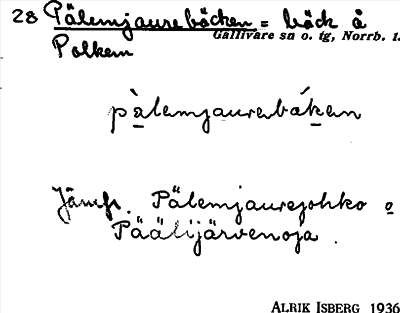 28 Pälemjaurebäcken = bäck å
Gällivare sn o. tg, Norrb. l.
Polkem
pàlemjaurebáken
Jämf. Pälemjaurejohko o
Päälijärvenoja.
ALRIK ISBERG 1936